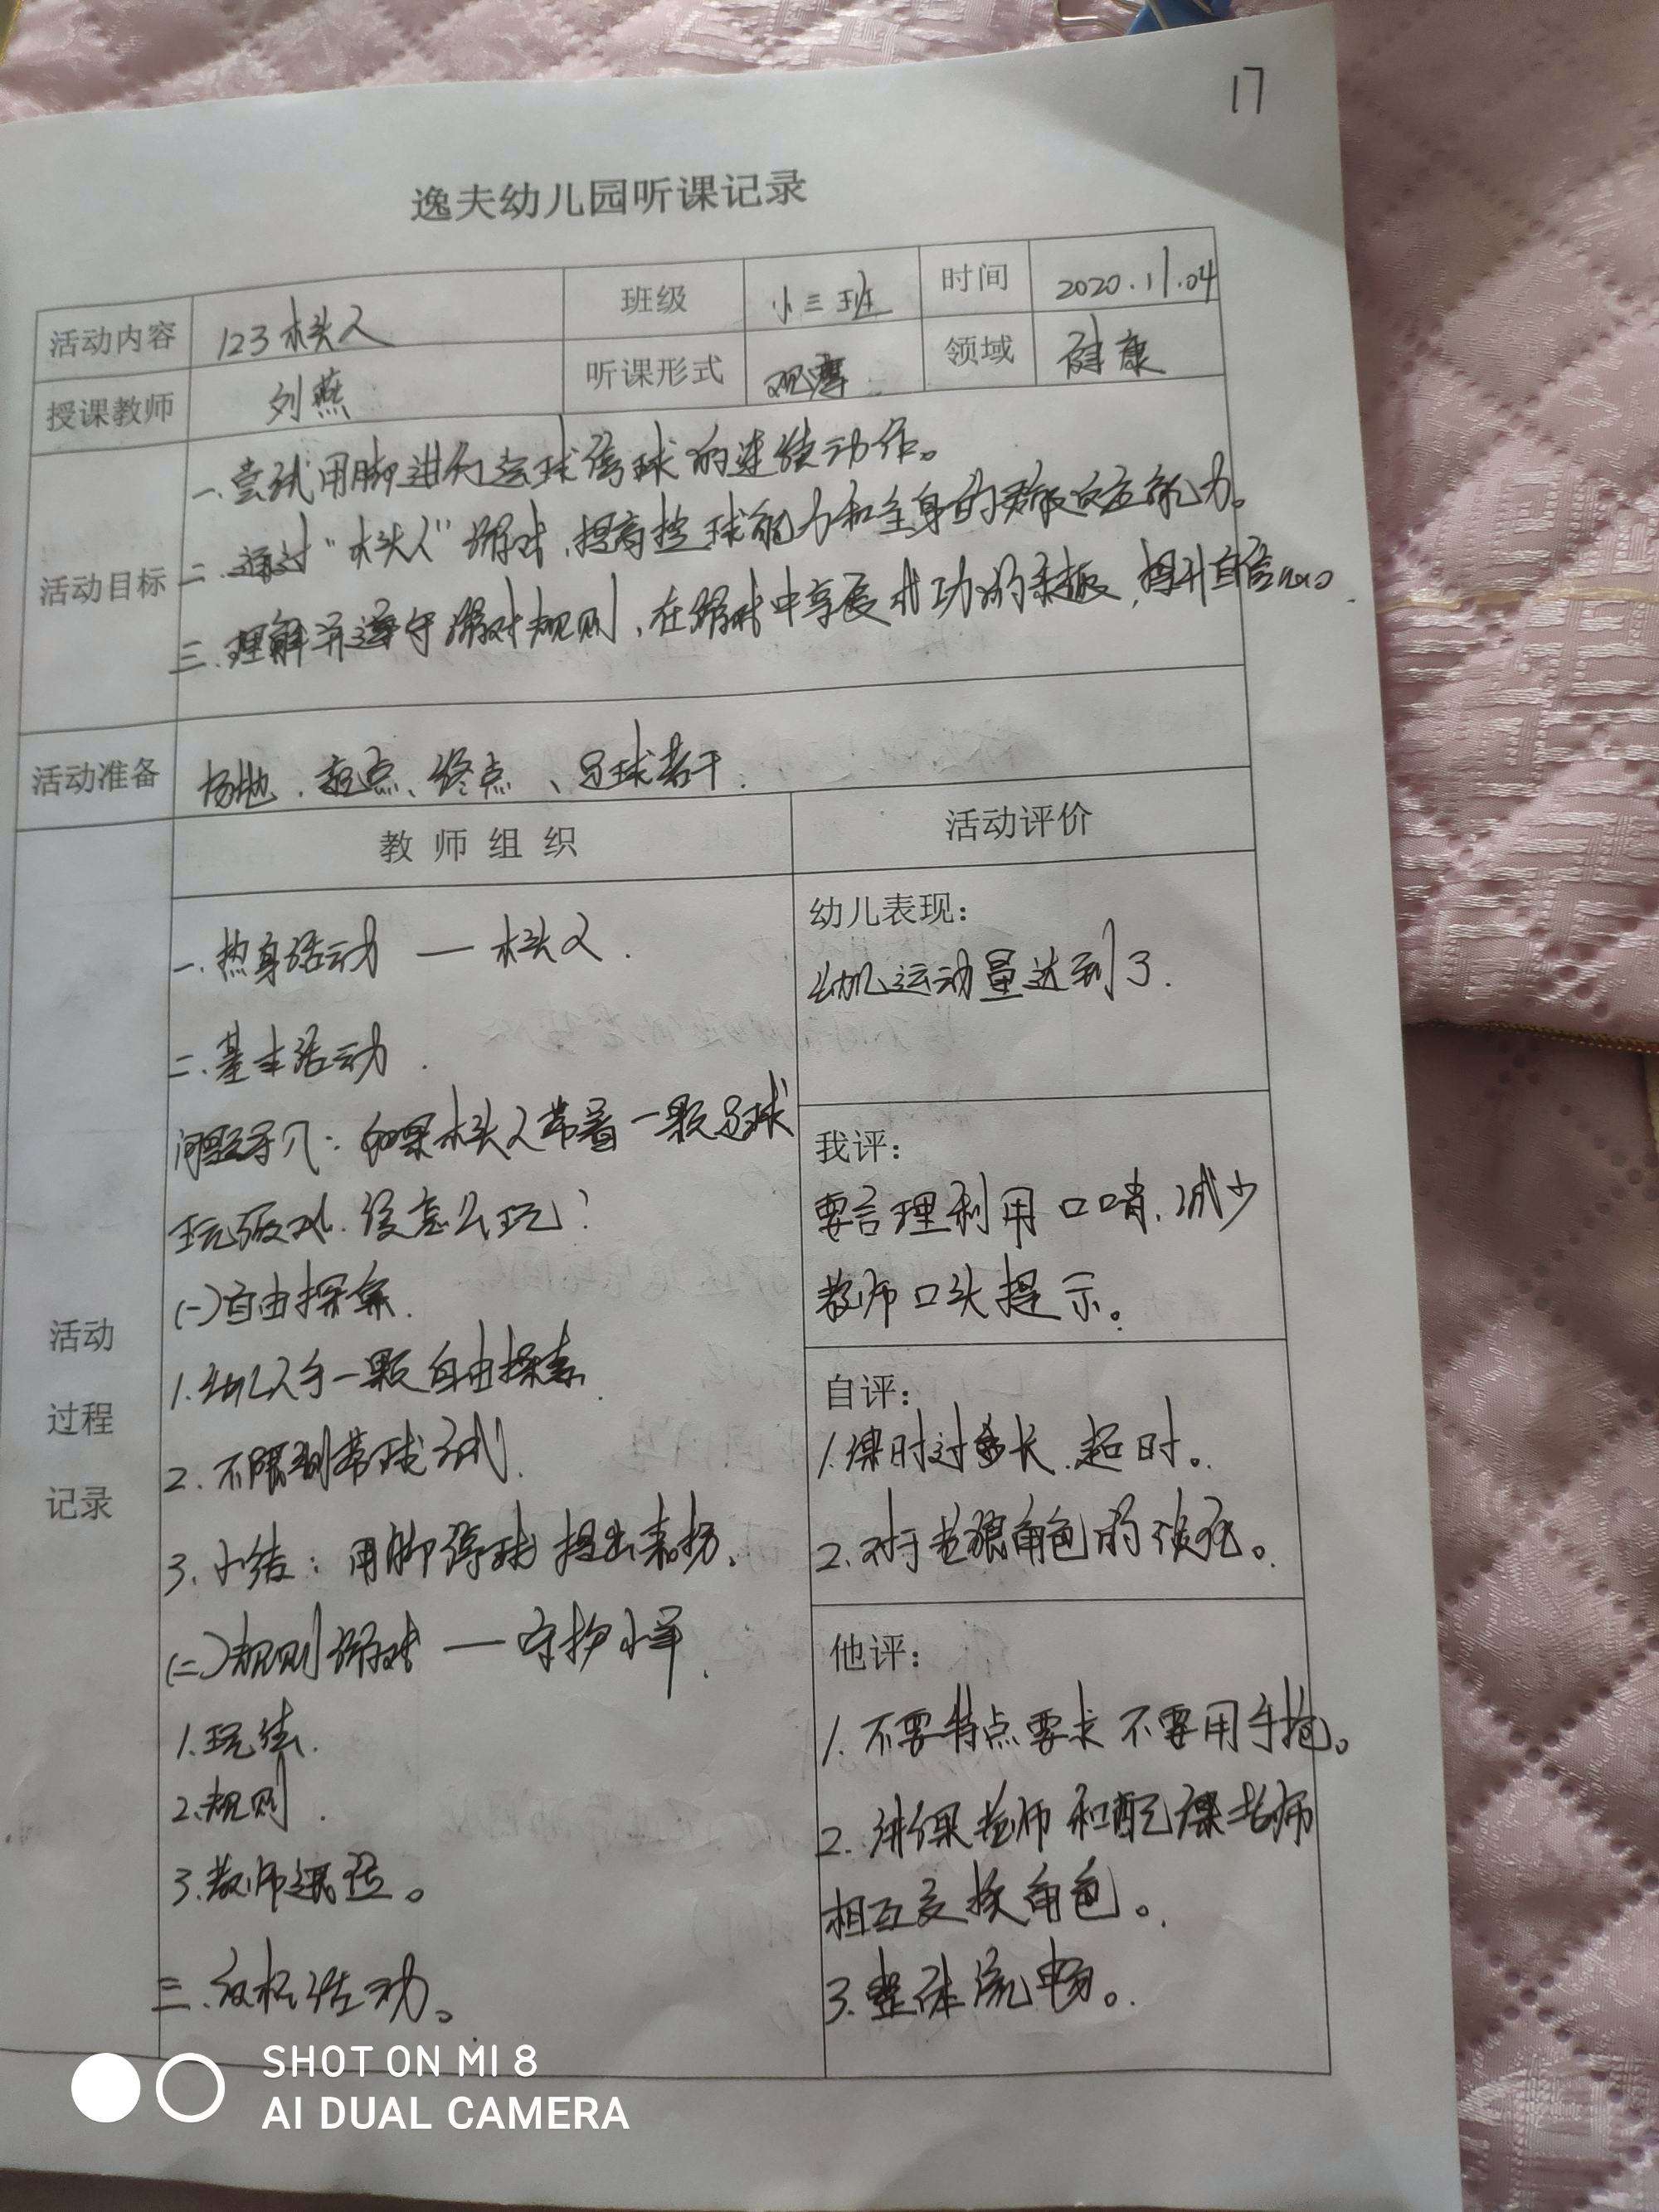 17
逸夫幼儿园听课记录
活动内容 123木头人 班级 小三班 时间 2020.11.04
授课教师 刘燕 听课形式 观摩 领域 健康
活动目标
一.尝试用脚进行运球停球的连续动作。
二.通过"木头人"游戏,提高控球能力和全身的灵敏反应能力。
三.理解并遵守游戏规则,在游戏中享受成功的乐趣,提升自信心。
活动准备 场地、起点、终点、足球若干.
教师组织 活动评价
活动
过程
记录
一.热身活动 — 木头人.
二.基本活动.
问题导入:如果木头人带着一颗足球
玩游戏.该怎么玩?
(一)自由探索.
1.幼儿人手一颗自由探索.
2.不限制带球方式.
3.小结:用脚停球 提出表扬。
(二)规则游戏 — 守护小羊.
1.玩法.
2.规则.
3.教师
三.放松活动。
幼儿表现:
幼儿运动量达到了.
我评:
要合理利用口哨.减少
教师口头提示。
自评:
1.课时过长.超时。
2.对于老狼角色的
他评:
1.不要特点要求 不要用手抱。
2.讲课老师和配课老师
相互交换角色。
3.整体流畅。
SHOT ON MI 8
AI DUAL CAMERA